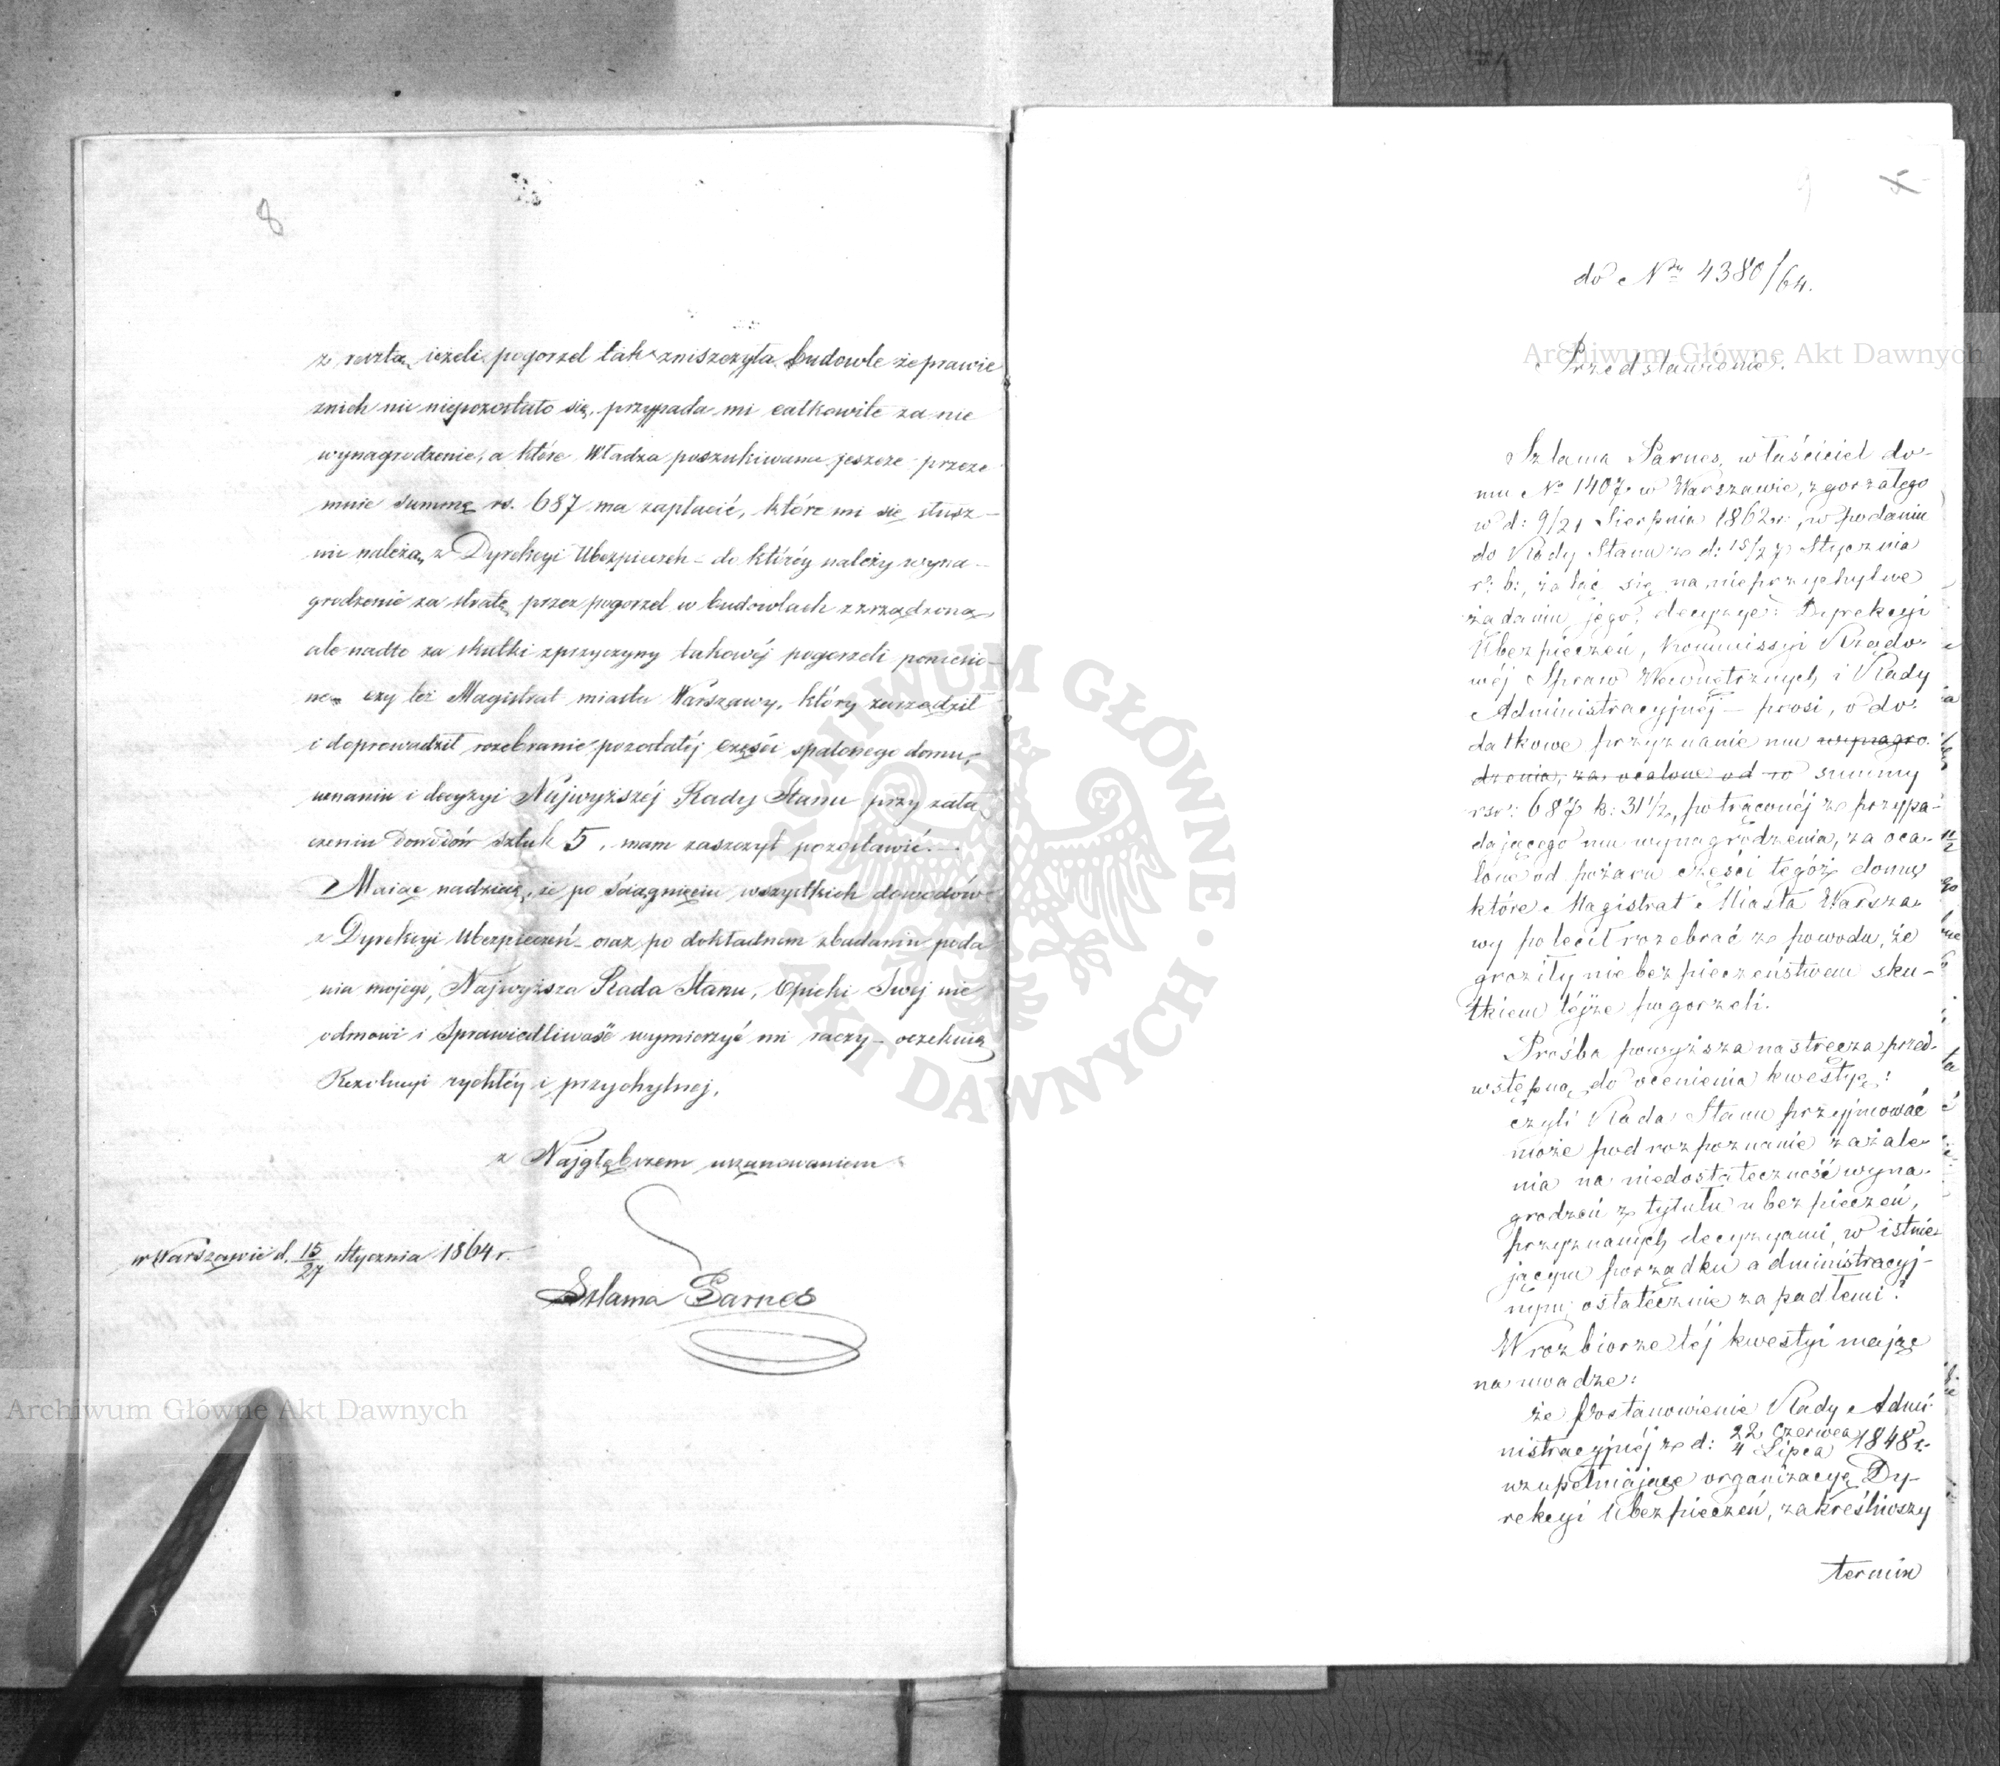 8
z resztą ieżeli pogorzel tak zniszczyła budowle że prawie
znich nic niepozostało się, przypada mi całkowite za nie
wynagrodzenie, a które Władza poszukiwana jeszcze przeze
mnie summę rs. 687 ma zapłacić, które mi się słusz-
nie należą, z Dyrekcyi Ubezpieczeń - do któréj należy wyna-
grodzenie za stratę przez pogorzel w budowlach zrządzoną
ale nadto za skutki zprzyczyny takowéj pogorzeli poniesio-
ne, czy też Magistrat miasta Warszawy, który zarządził
i doprowadził rozebranie pozostałéj części spalonego domu,
uznaniu i decyzyi Najwyższéj Rady Stanu przy załą
czeniu Dowodów sztuk 5, mam zaszczyt pozostawić. —
Maiąc nadzieię, że po ściągnięciu wszystkich dowodów
z Dyrekcyi Ubezpieczeń - oraz po dokładnem zbadaniu poda
nia mojego, Najwyższa Rada Stanu, Opieki Swej nie
odmówi i Sprawiedliwość wymierzyć mi raczy - oczekuię
Rezolucyi rychłéy i przychylnej.
z Najgłębszem uszanowaniem
w Warszawie d. 15/27 Stycznia 1864 r.
Szlama Parnes
9
do Nru 4380/64.
Przedstawienie.
Szlama Parnes, właściciel do-
mu No 1407 w Warszawie, zgorzałego
w d: 9/21 Sierpnia 1862 r:, w podaniu
do Rady Stanu z d: 15/27 Stycznia
r: b:, żaląc się na nieprzychylne
żądaniu jego decyzye: Dyrekcyi
Ubezpieczeń, Kommissyi Rządo-
wéj Spraw Wewnętrznych i Rady
Administracyjnéj - prosi, o do-
datkowe przyznanie mu wynagro-
dzenia, za ocalone od summy
rsr: 687 k: 31 1/2, potrąconéj z przypa-
dającego mu wynagrodzenia, za oca-
lone od pożaru części tegoż domu
które Magistrat Miasta Warsza-
wy polecił rozebrać z powodu, że
groziły niebezpieczeństwem sku-
tkiem téjże pogorzeli.
Prośba powyższa nastręcza przed-
wstępną do ocenienia kwestyę:
czyli Rada Stanu przyjmować
może pod rozpoznanie zażale-
nia na niedostateczność wyna-
grodzeń z tytułu ubezpieczeń,
przyznanych decyzyami, w istnie-
jącym porządku administracyj-
nym ostatecznie zapadłemi?
W rozbiorze téj kwestyi mając
na uwadze:
że Postanowienie Rady Admi-
nistracyjnéj z d: 22 Czerwca / 4 Lipca 1848 r:
uzupełniające organizacyę Dy-
rekcyi Ubezpieczeń, zakreśliwszy
termin
Archiwum Główne Akt Dawnych
Archiwum Główne Akt Dawnych
ARCHIWUM GŁÓWNE AKT DAWNYCH